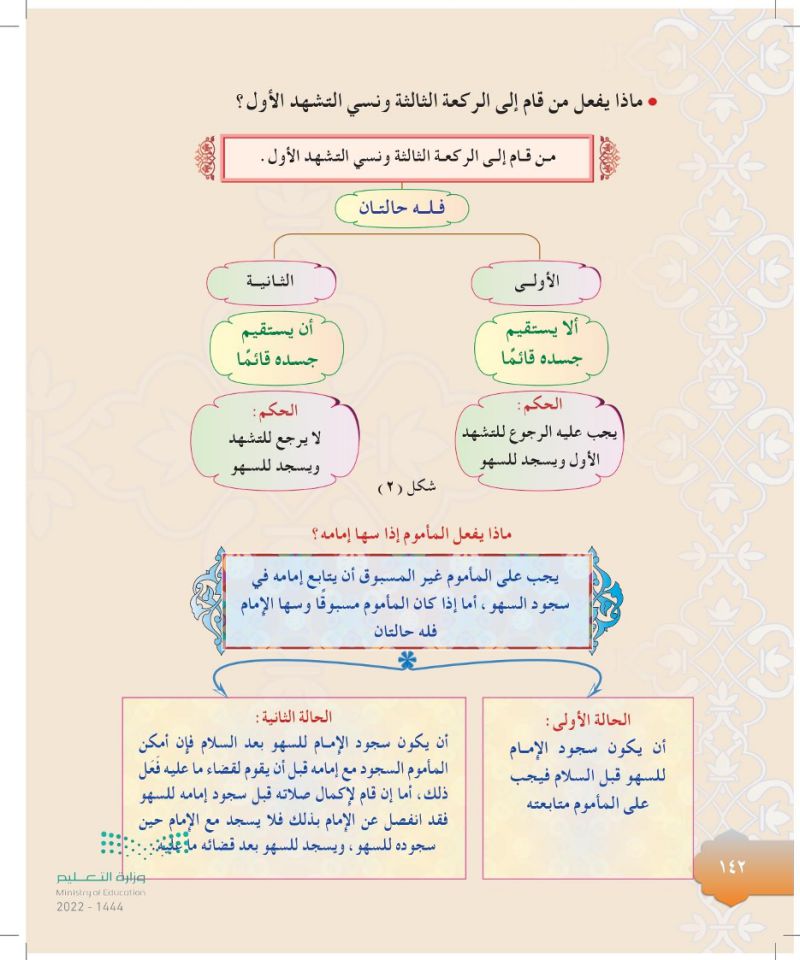 • ماذا يفعل من قام إلى الركعة الثالثة ونسي التشهد الأول؟
مـن قـام إلـى الركعـة الثالثـة ونسـي التشهـد الأول.
فـلـه حالتـان
الأولـى
ألا يستقيم
جسده قائمًا
الحكم:
يجب عليه الرجوع للتشهد
الأول ويسجد للسهو
الثـانيـة
أن يستقيم
جسده قائمًا
الحكم:
لا يرجع للتشهد
ويسجد للسهو
شكل (٢)
ماذا يفعل المأموم إذا سها إمامه؟
يجب على المأموم غير المسبوق أن يتابع إمامه في
سجود السهو، أما إذا كان المأموم مسبوقًا وسها الإمام
فله حالتان
الحالة الأولى:
أن يكون سجود الإمـام
للسهو قبل السلام فيجب
على المأموم متابعته
الحالة الثانية:
أن يكون سجود الإمـام للسهو بعد السلام فإن أمكن
المأموم السجود مع إمامه قبل أن يقوم لقضاء ما عليه فَعَل
ذلك، أما إن قام لإكمال صلاته قبل سجود إمامه للسهو
فقد انفصل عن الإمام بذلك فلا يسجد مع الإمام حين
سجوده للسهو، ويسجد للسهو بعد قضائه ما عليه.
١٤٢
وزارة التـعـلـيم
Ministry of Education
2022 - 1444